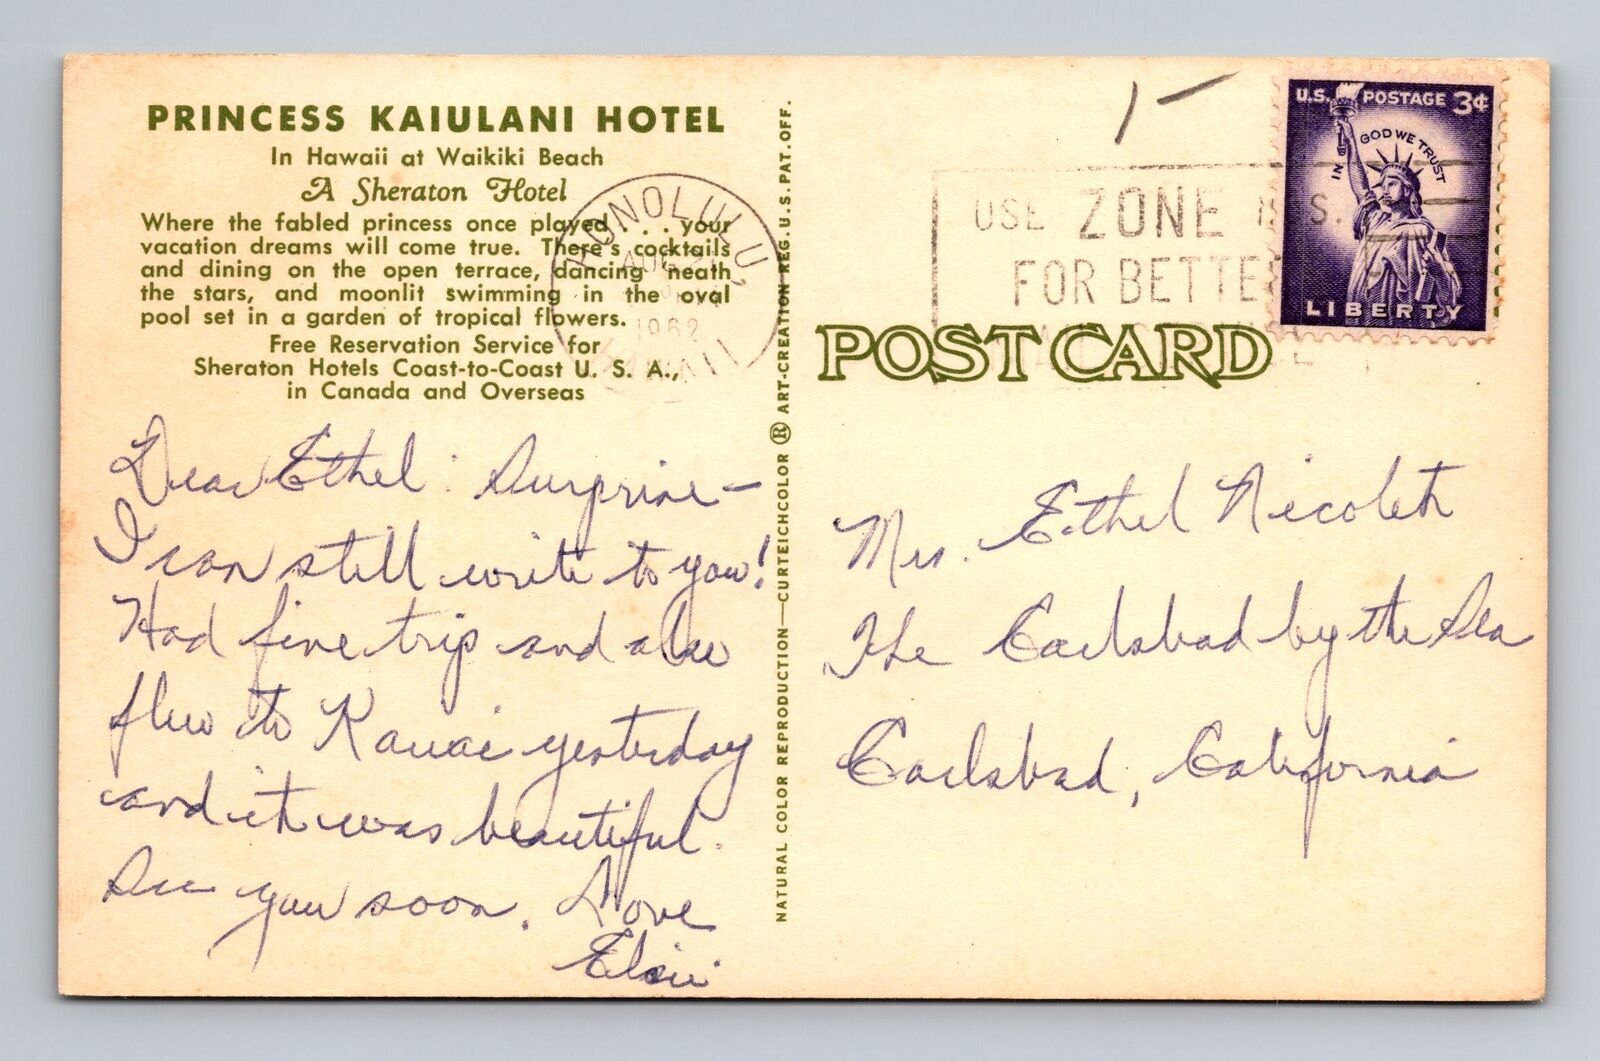 PRINCESS KAIULANI HOTEL
In Hawaii at Waikiki Beach
A Sheraton Hotel
Where the fabled princess once played . . . your
vacation dreams will come true. There's cocktails
and dining on the open terrace, dancing 'neath
the stars, and moonlit swimming in the oval
pool set in a garden of tropical flowers.
Free Reservation Service for
Sheraton Hotels Coast-to-Coast U. S. A.,
in Canada and Overseas
HONOLULU,
AUG
1962
HAWAII
Dear Ethel: Surprise—
I can still write to you!
Had fine trip and also
flew to Kauai yesterday
and it was beautiful.
See you soon. Love
Elsie
NATURAL COLOR REPRODUCTION—CURTEICHCOLOR ® ART-CREATION REG. U.S. PAT. OFF.
USE ZONE
FOR BETTE
U.S. POSTAGE 3¢
IN GOD WE TRUST
LIBERTY
POST CARD
Mrs. Ethel
The Carlsbad by the Sea
Carlsbad, California